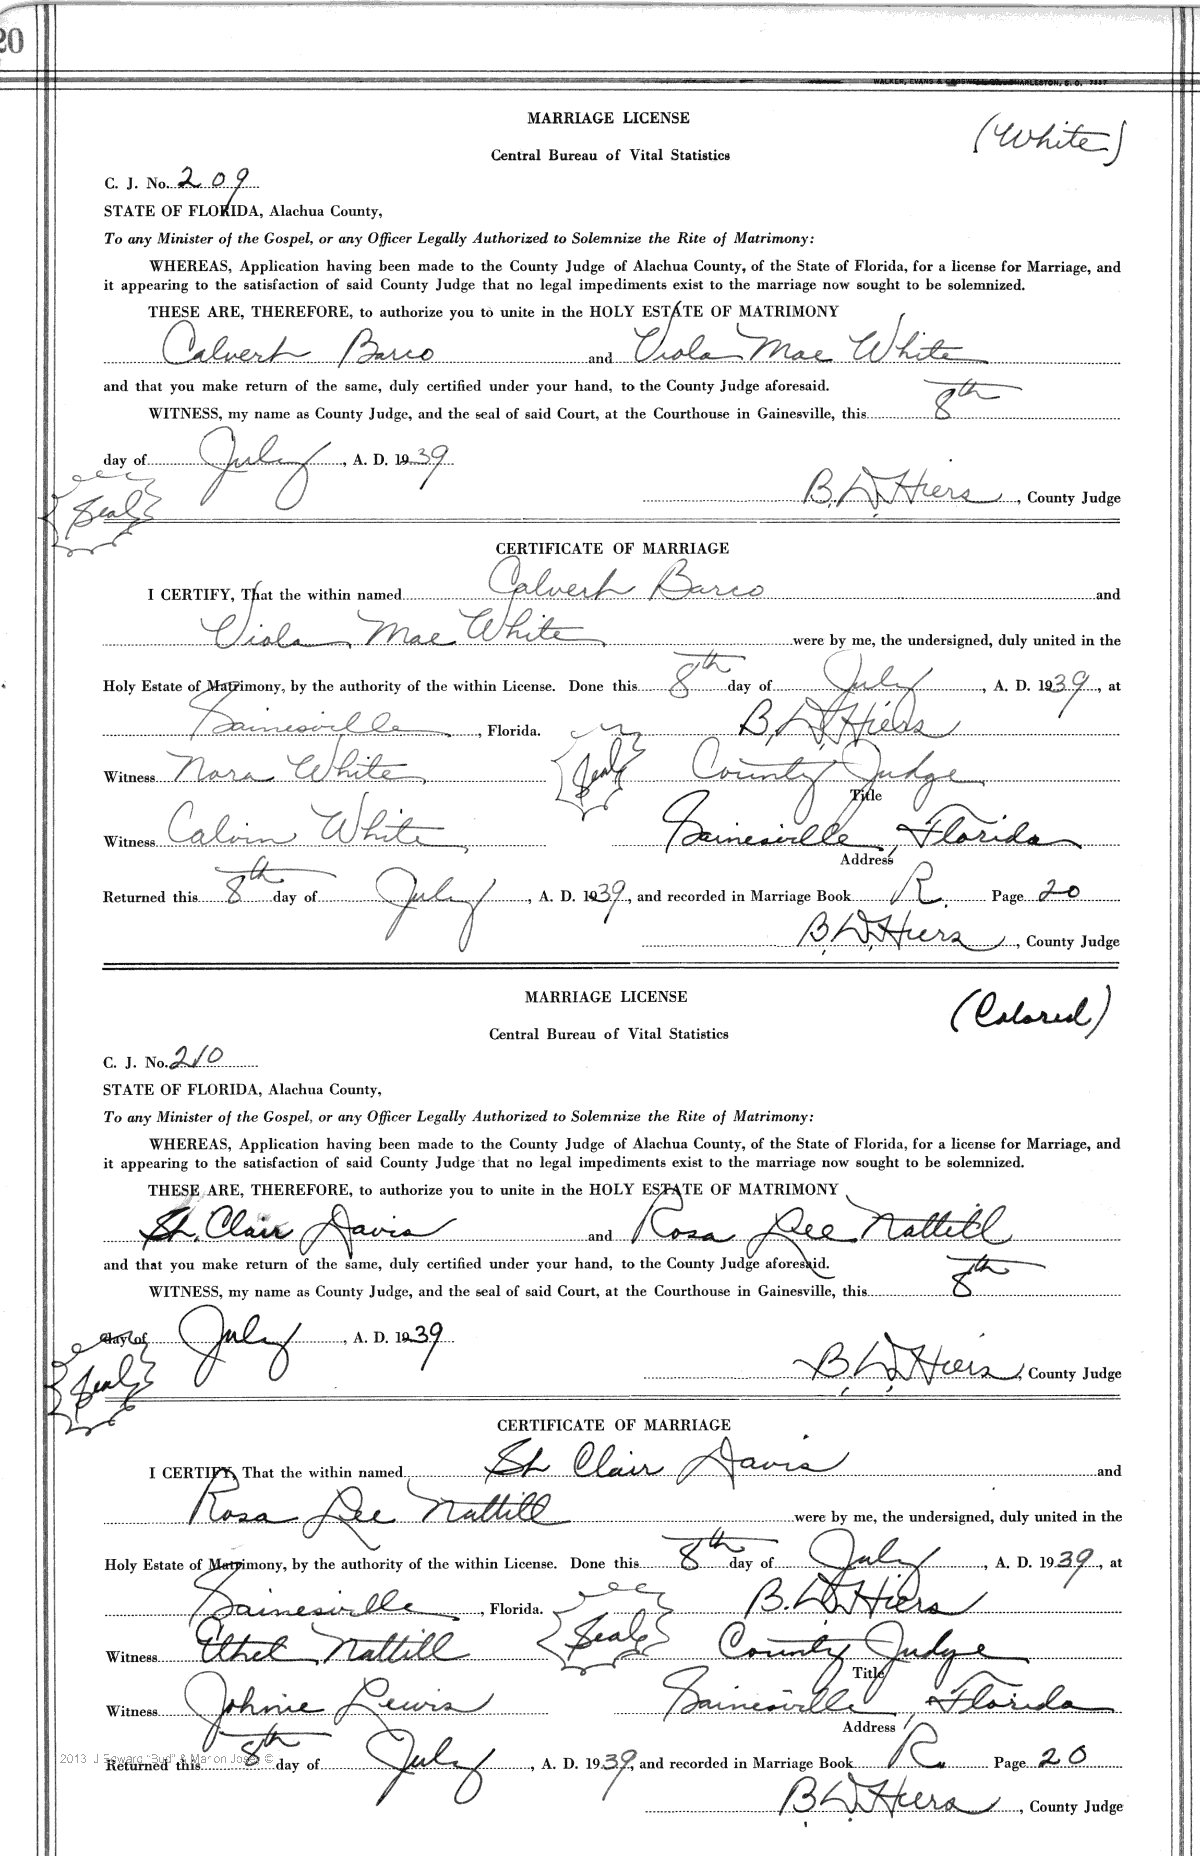 20
WALKER, EVANS & COGSWELL CO., CHARLESTON, S. C. 7557
MARRIAGE LICENSE
(White)
Central Bureau of Vital Statistics
C. J. No. 209
STATE OF FLORIDA, Alachua County,
To any Minister of the Gospel, or any Officer Legally Authorized to Solemnize the Rite of Matrimony:
WHEREAS, Application having been made to the County Judge of Alachua County, of the State of Florida, for a license for Marriage, and
it appearing to the satisfaction of said County Judge that no legal impediments exist to the marriage now sought to be solemnized.
THESE ARE, THEREFORE, to authorize you to unite in the HOLY ESTATE OF MATRIMONY
Calvert Barco and Viola Mae White
and that you make return of the same, duly certified under your hand, to the County Judge aforesaid.
WITNESS, my name as County Judge, and the seal of said Court, at the Courthouse in Gainesville, this 8th
day of July, A. D. 1939
Seal
B. D. Hiers, County Judge
CERTIFICATE OF MARRIAGE
I CERTIFY, That the within named Calvert Barco and
Viola Mae White were by me, the undersigned, duly united in the
Holy Estate of Matrimony, by the authority of the within License. Done this 8th day of July, A. D. 1939, at
Gainesville, Florida. B. D. Hiers
Witness Nora White Seal County Judge
Title
Witness Calvin White Gainesville, Florida
Address
Returned this 8th day of July, A. D. 1939, and recorded in Marriage Book R. Page 20
B. D. Hiers, County Judge
MARRIAGE LICENSE
(Colored)
Central Bureau of Vital Statistics
C. J. No. 210
STATE OF FLORIDA, Alachua County,
To any Minister of the Gospel, or any Officer Legally Authorized to Solemnize the Rite of Matrimony:
WHEREAS, Application having been made to the County Judge of Alachua County, of the State of Florida, for a license for Marriage, and
it appearing to the satisfaction of said County Judge that no legal impediments exist to the marriage now sought to be solemnized.
THESE ARE, THEREFORE, to authorize you to unite in the HOLY ESTATE OF MATRIMONY
St. Clair Davis and Rosa Lee Nattill
and that you make return of the same, duly certified under your hand, to the County Judge aforesaid.
WITNESS, my name as County Judge, and the seal of said Court, at the Courthouse in Gainesville, this 8th
day of July, A. D. 1939
Seal
B. D. Hiers, County Judge
CERTIFICATE OF MARRIAGE
I CERTIFY, That the within named St Clair Davis and
Rosa Lee Nattill were by me, the undersigned, duly united in the
Holy Estate of Matrimony, by the authority of the within License. Done this 8th day of July, A. D. 1939, at
Gainesville, Florida. Seal B. D. Hiers
Witness Ethel Nattill County Judge
Title
Witness Johnie Lewis Gainesville, Florida
Address
2013 J Edward "Bud" & Marion Josey ©
Returned this 8th day of July, A. D. 1939, and recorded in Marriage Book R. Page 20
B. D. Hiers, County Judge